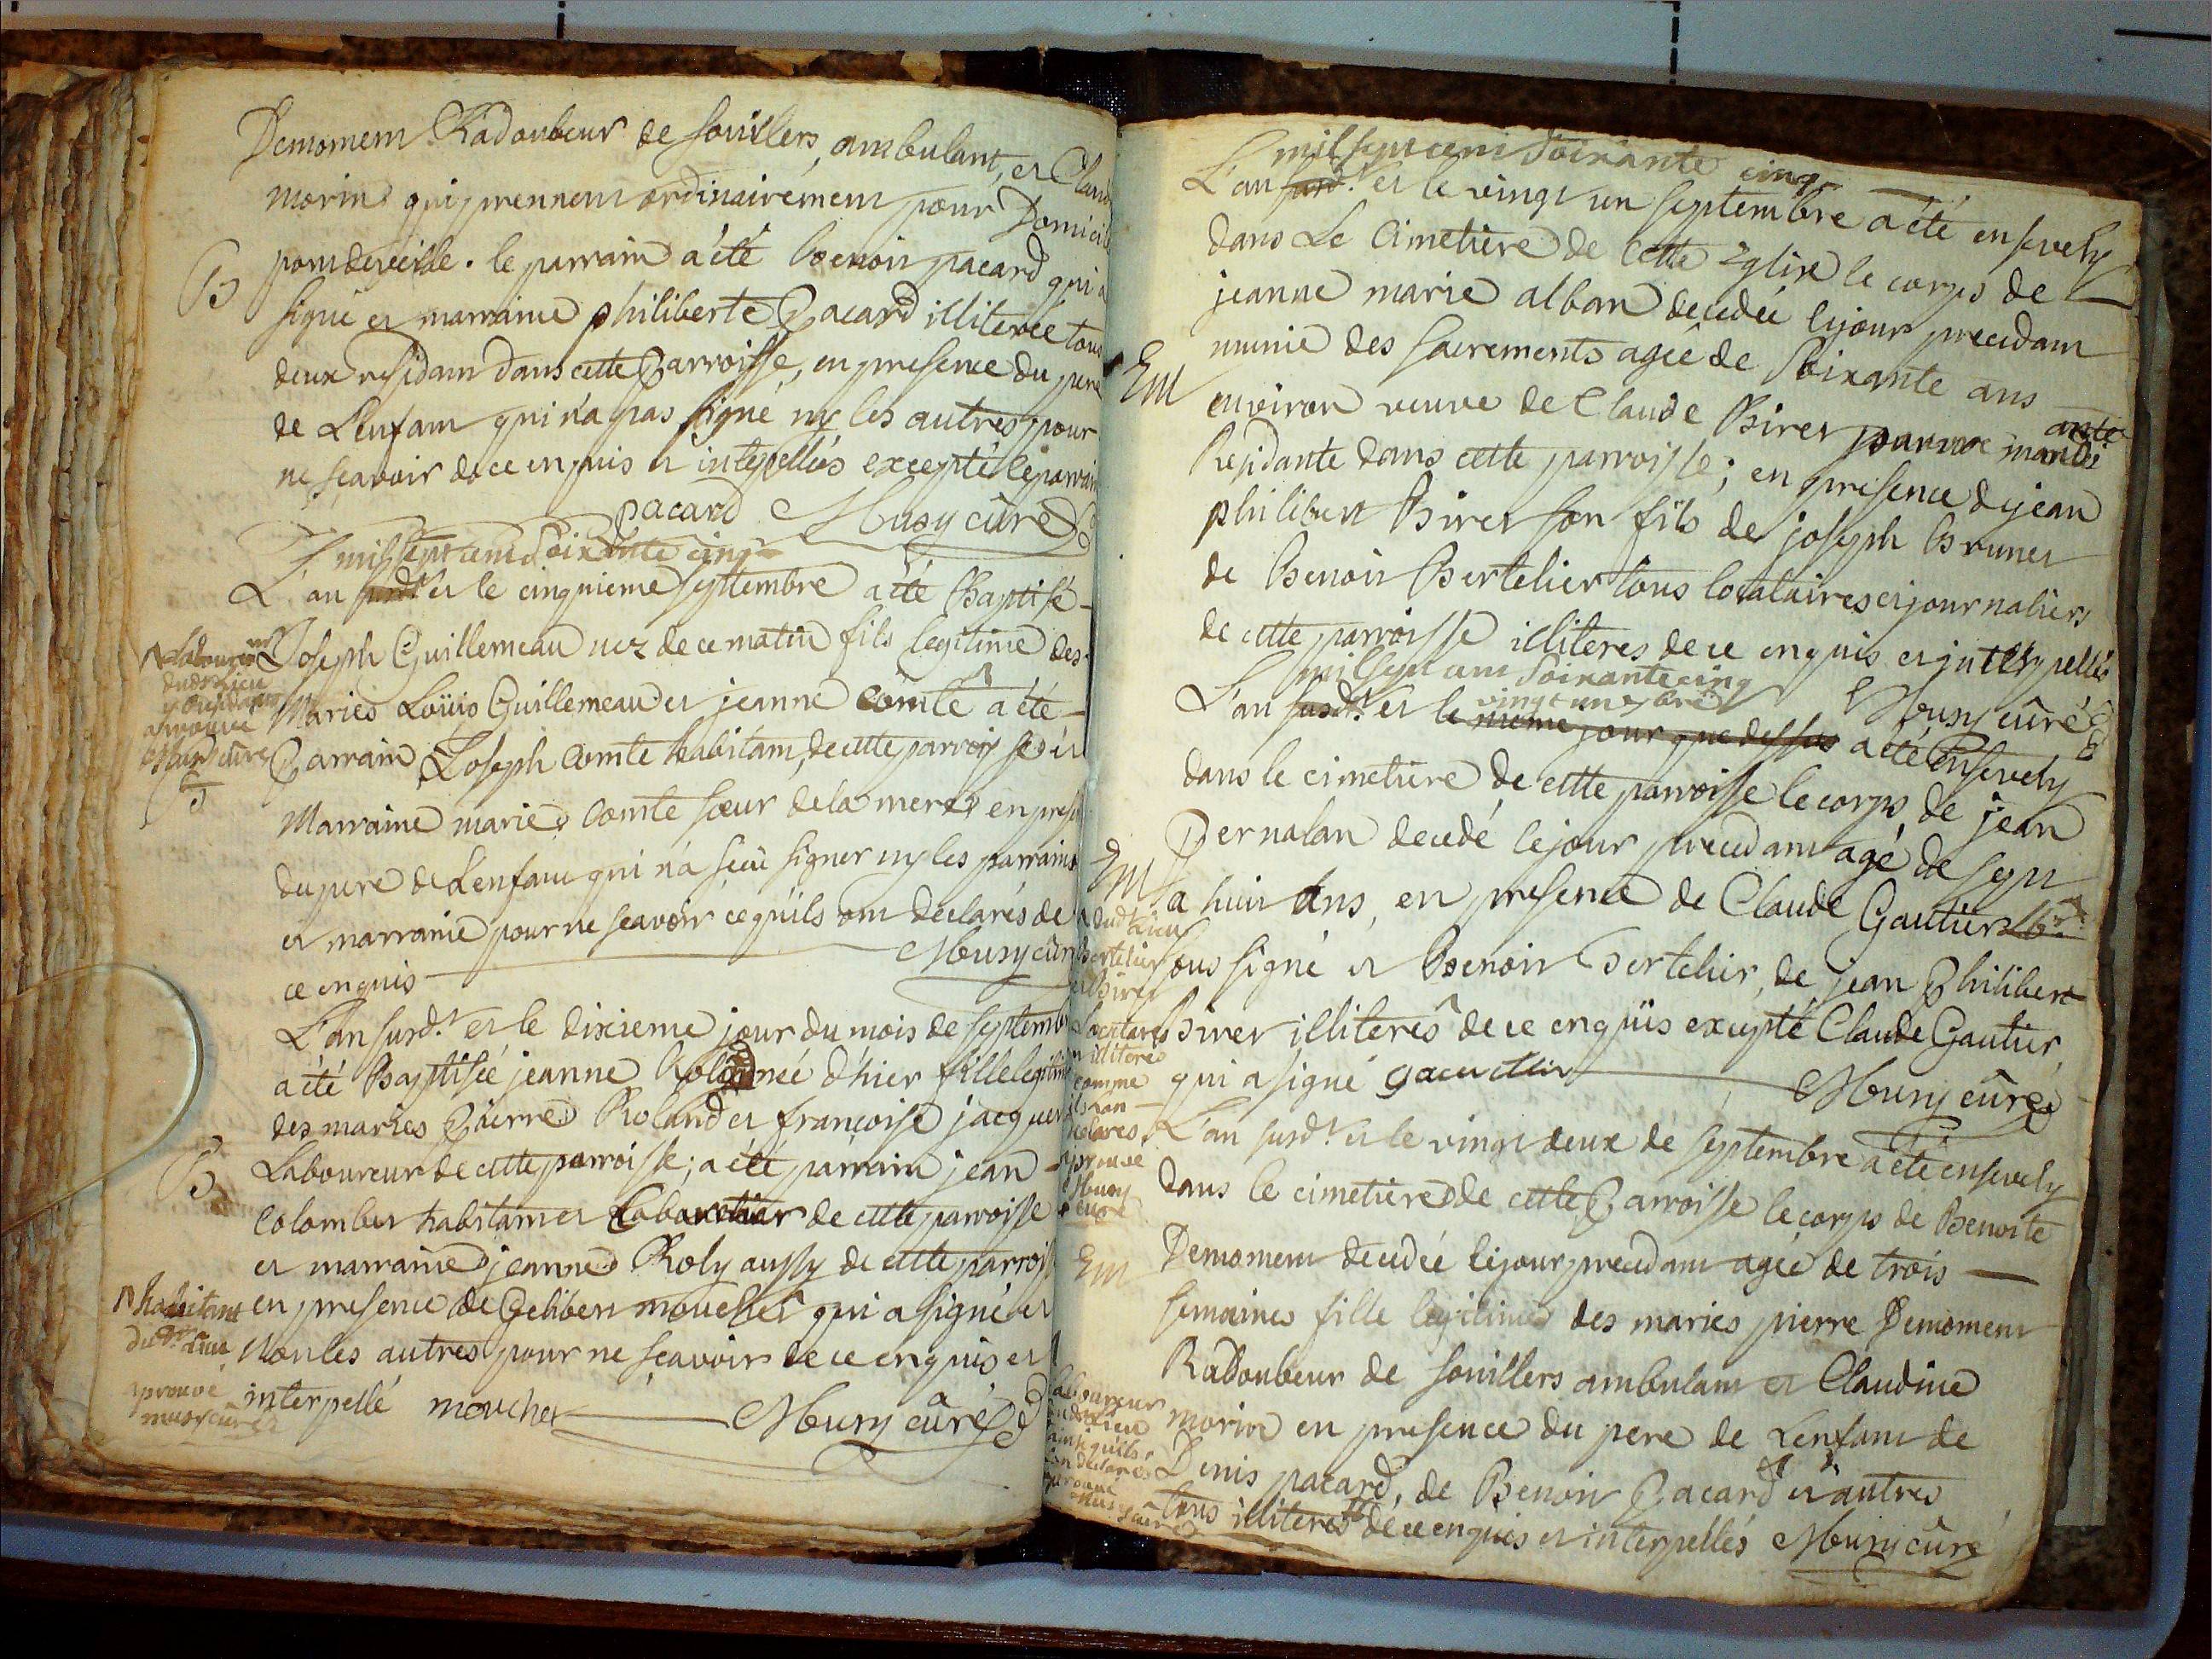 Demomem Radoubeur de souillers, ambulant, et Claud
morin qui prennent ordinairement pour Domicile
pondeveille. le parrain a été benoit pacard qui a
B
signé et marraine philiberte Pacard illiterée tous
deux residam dans cette Parroisse, en presence du pere
de L'enfam qui n'a pas signé ny les autres pour
ne sçavoir de ce enquis et intepellés excepté le parrain
pacard Musy curé
mil sept cent Soixante cinq
L'an susd.t et le cinquieme septembre a été Baptisé
Joseph Guillemeau nez de ce matin fils legitime des
Maries Loüis Guillemeau et jeanne Comte a été
Parrain Joseph Comte habitam, de cette parroisse et
B
Marraine marie Comte sœur de la mere en prese
du pere de L'enfam qui n'a sçeü signer ny les parrains
et marraine pour ne sçavoir ce qu'ils ont declarés de
ce enquis Musy curé
L'an susd.t et le dixieme jour du mois de septemb
a été Baptisée jeanne née d'hier fille legitime
des maries Pierre Roland et françoise jacquet
B
Laboureur de cette parroisse; a été parrain jean
Colombet habitam et de cette parroisse
et marraine jeanne Roly aussy de cette parroisse
habitant
du d.t Lieu
aprouvé
musy curé
en presence de Gelibert mouchet qui a signé et
Non les autres pour ne sçavoir de ce enquis et
interpellé mouchet Musy curé
mil sept cent Soixante cinq
L'an susd.t et le vingt un septembre a été ensevely
dans Le Cimetiere de Cette Eglise le corps de
jeanne marie alban decedée le jour precedam
Em
munie des sacrements agée de Soixante ans
environ veuve de Claude Biret
Residante dans cette parroisse; en presence de jean
philibert Biret son fils de joseph Brunet
de Benoit Bertelier tous locataires et journaliers
de cette parroisse illiteres de ce enquis et interpellés
Musy curé
mil sept cent Soixante cinq
vingt un 7bre
L'an susd.t et le meme jour que dessus a été Ensevely
dans le cimetiere de cette parroisse le corps de jean
Em
Pernalan decedé le jour precedam agé de sept
a huit Ans, en presence de Claude Gautier
sous signé et Benoit Bertelier, de jean Philibert
Biret illiterés de ce enquis excepté Claude Gautier
qui a signé gautier Musy curé
dud Lieu
Bertelier
et Biret
locataires
illiteres
comme
declarés
aprouvé
Musy
curé
L'an susd.t et le vingt deux de septembre a été ensevely
dans le cimetiere de cette Parroisse le corps de Benoite
Em
Demomem decedée le jour precedam agée de trois
semaines fille legitime des maries pierre Demomem
Radoubeur de souillers ambulam et Claudine
morin en presence du pere de L'enfam de
Denis pacard, de Benoit Pacard et autres
tous illiterés de ce enquis et interpellés Musy curé